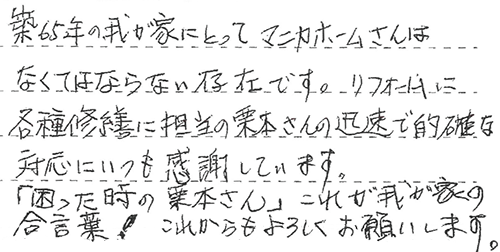 築65年の我が家にとってマニカホームさんは
なくてはならない存在です。リフォームに
各種修繕に担当の栗本さんの迅速で的確な
対応にいつも感謝しています。
「困った時の栗本さん」これが我が家の
合言葉！これからもよろしくお願いします。